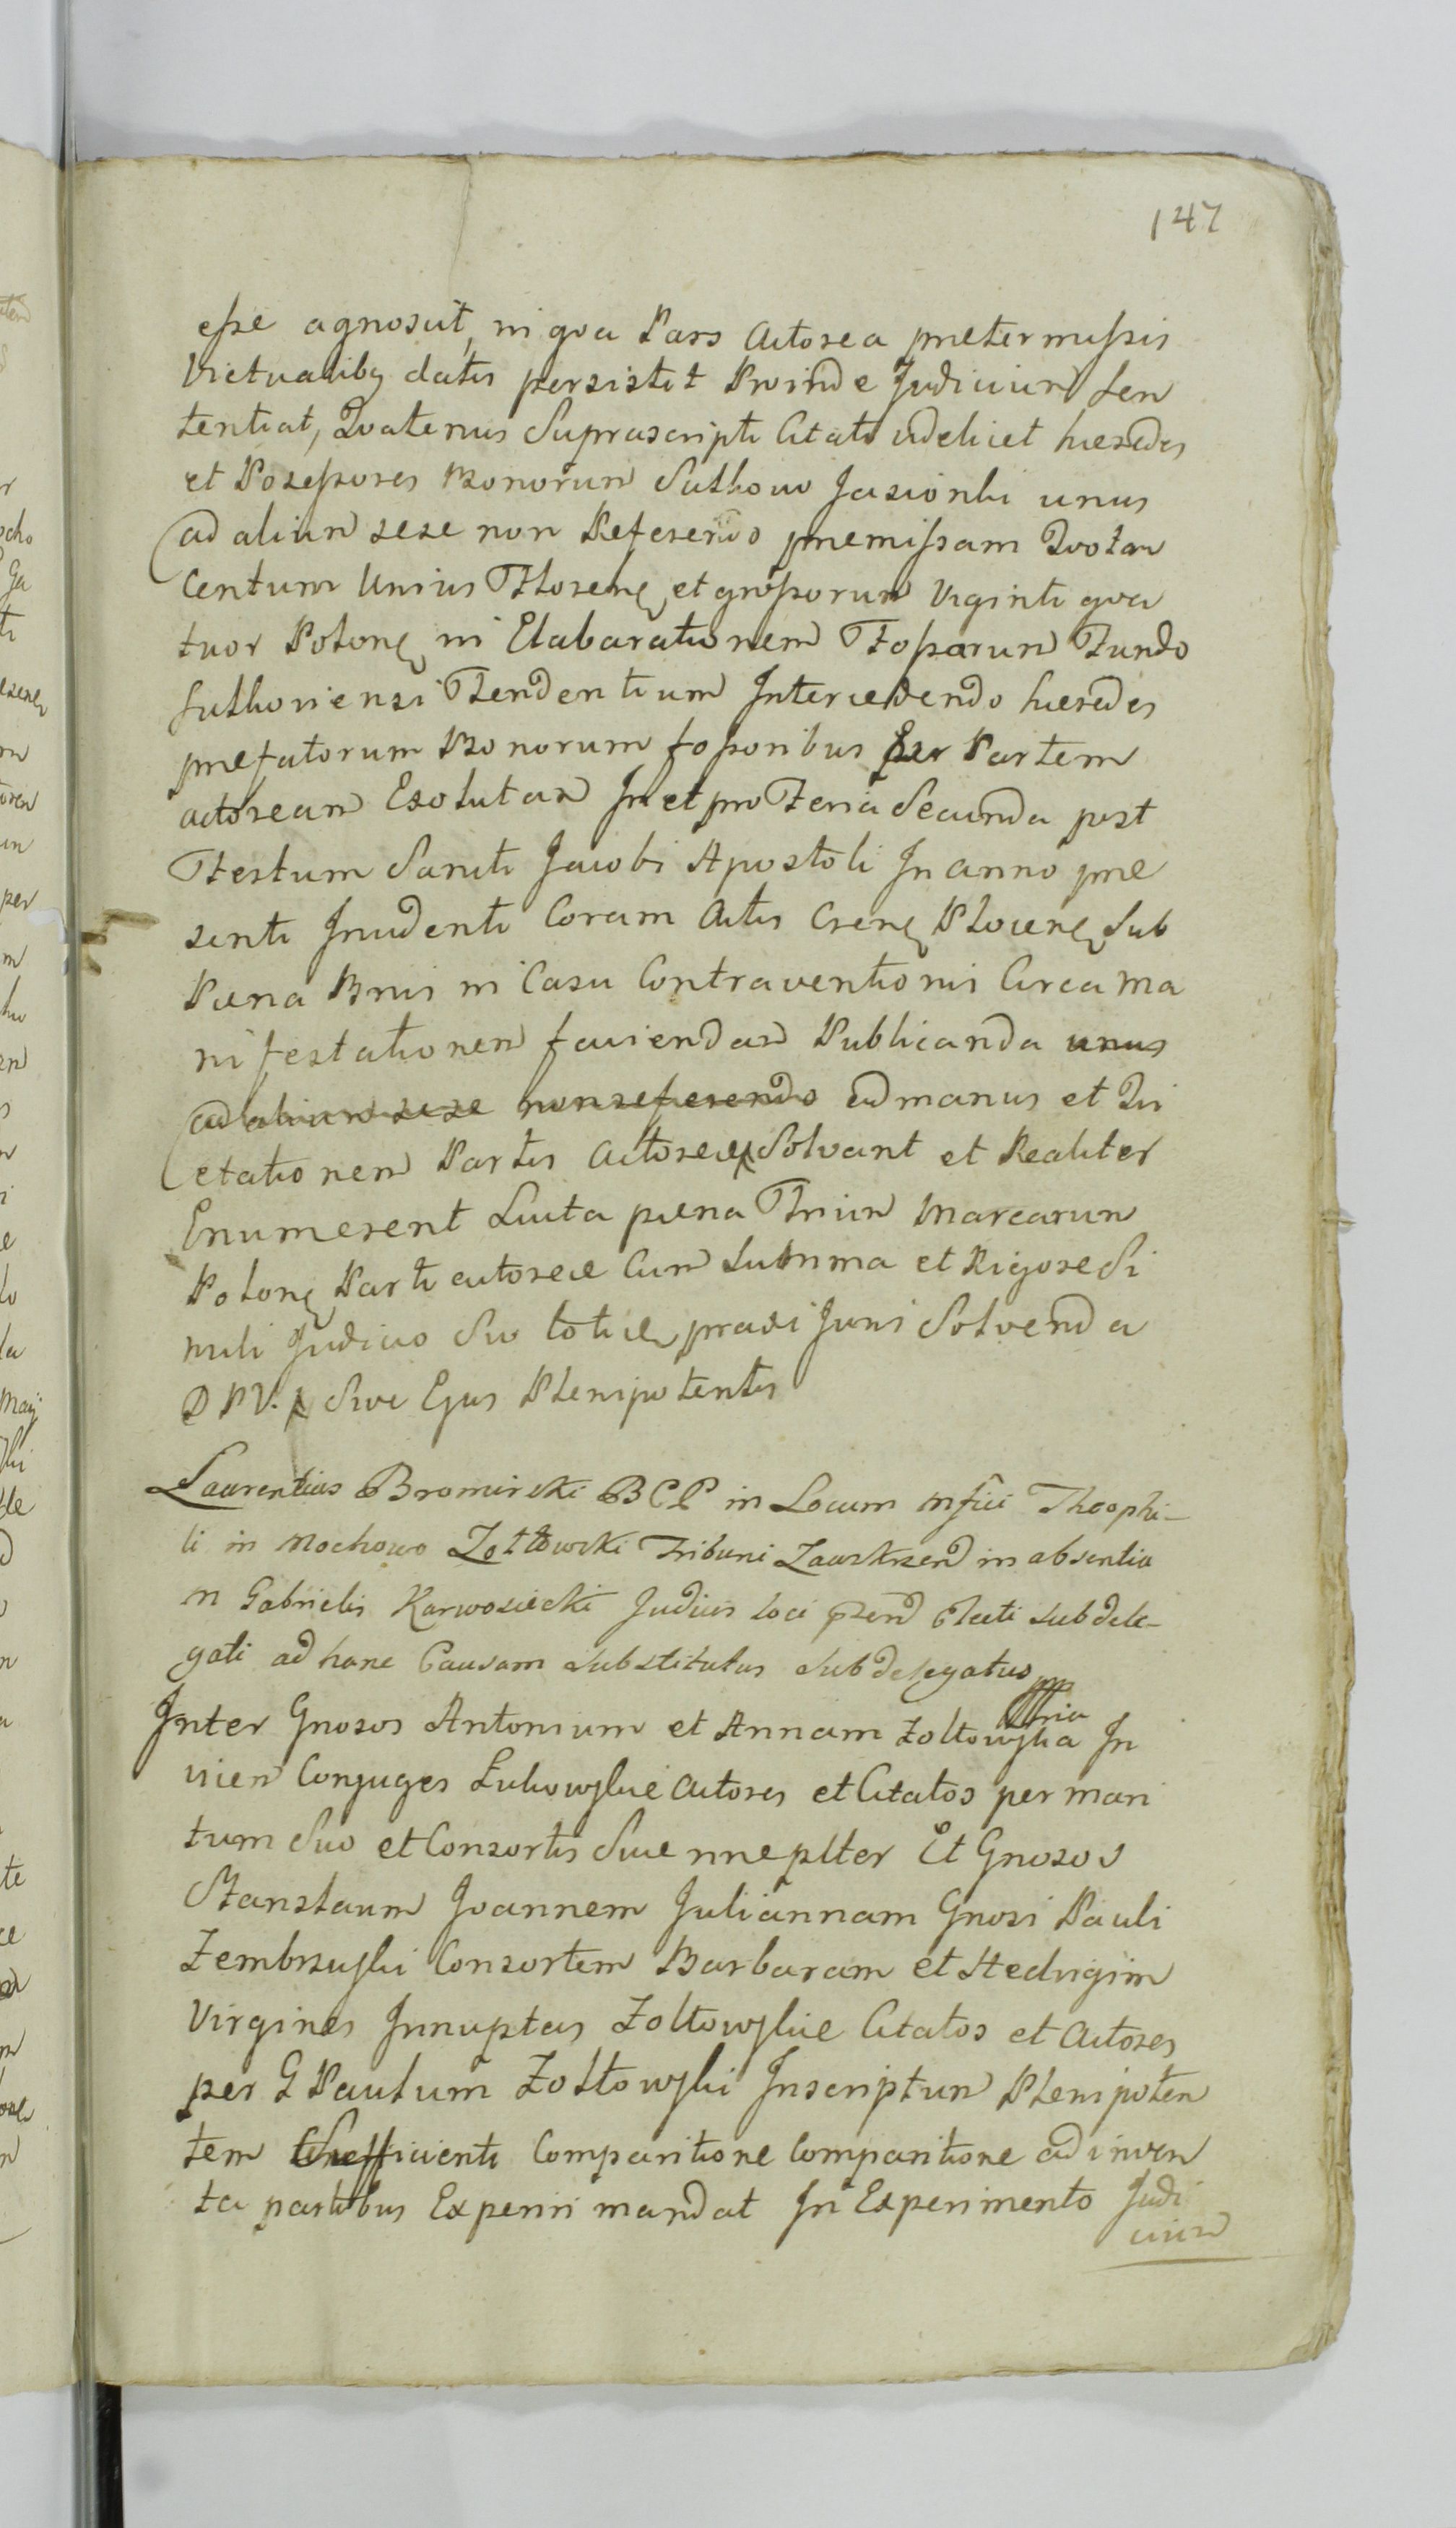 147
esse agnoscit, in qva Pars Actorea prætermissis
Victualibq datis persistit Proinde Judicium Sen
tentiat, Qvatenus Suprascripti Citati videlicet hæredes
et Possessores Bonorum Sulkowo Jasionki unus
ad alium sese non Referendo præmissam Qvotam
Centum Unius Florenq et grossorum Viginti qva
tuor Polonq in Elabarationem Fossarum Fundo
Sulkoviensi Tendentium Intercedendo hæredes
præfatorum Bonorum fossoribus Per Partem
actoream Exolutam In et pro Feria Secunda post
Festum Sancti Jacobi Apostoli In anno præ
senti Incidenti Coram Actis Crenq Plocenq Sub
Pæna Bnis in Casu Contraventionis Circa Ma
nifestationem faciendam Publicanda unus
ad alium sese non referendo ad manus et Qvi
etationem Partis Actoreæ Solvant et Realiter
Enumerent Luita pæna Trium Marcarum
Polonq Parti actoreæ Cum Summa et Rigore Si
mili Judicio Suo totie praxi Juris Solvenda
D P V. Sive Ejus Plenipotentis
Laurentius Bromirski BCP in Locum Mfici Theophi-
li in Mochowo Zołtowski Tribuni Zawskrzen in absentia
M Gabrielis Karwosiecki Judicis loci pzen Electi Subdele-
gati ad hanc Causam Substitutus Subdelegatus
mppria
Inter Gnosos Antonium et Annam Zołtowska In
vicem Conjuges Łukowskie Actores et Citatos per mari
tum Suo et Consortis Suæ nne plter Et Gnosos
Stanslaum Joannem Juliannam Gnosi Pauli
Zembrzuski Consortem Barbaram et Hedvigim
Virgines Innuptas Zołtowskie Citatos et Actores
per G Paulum Zołtowski Inscriptum Plenipoten
tem Sufficienti Comparitione Comparitione ad inven
ta partibus Experiri mandat In Experimento Judi
cium